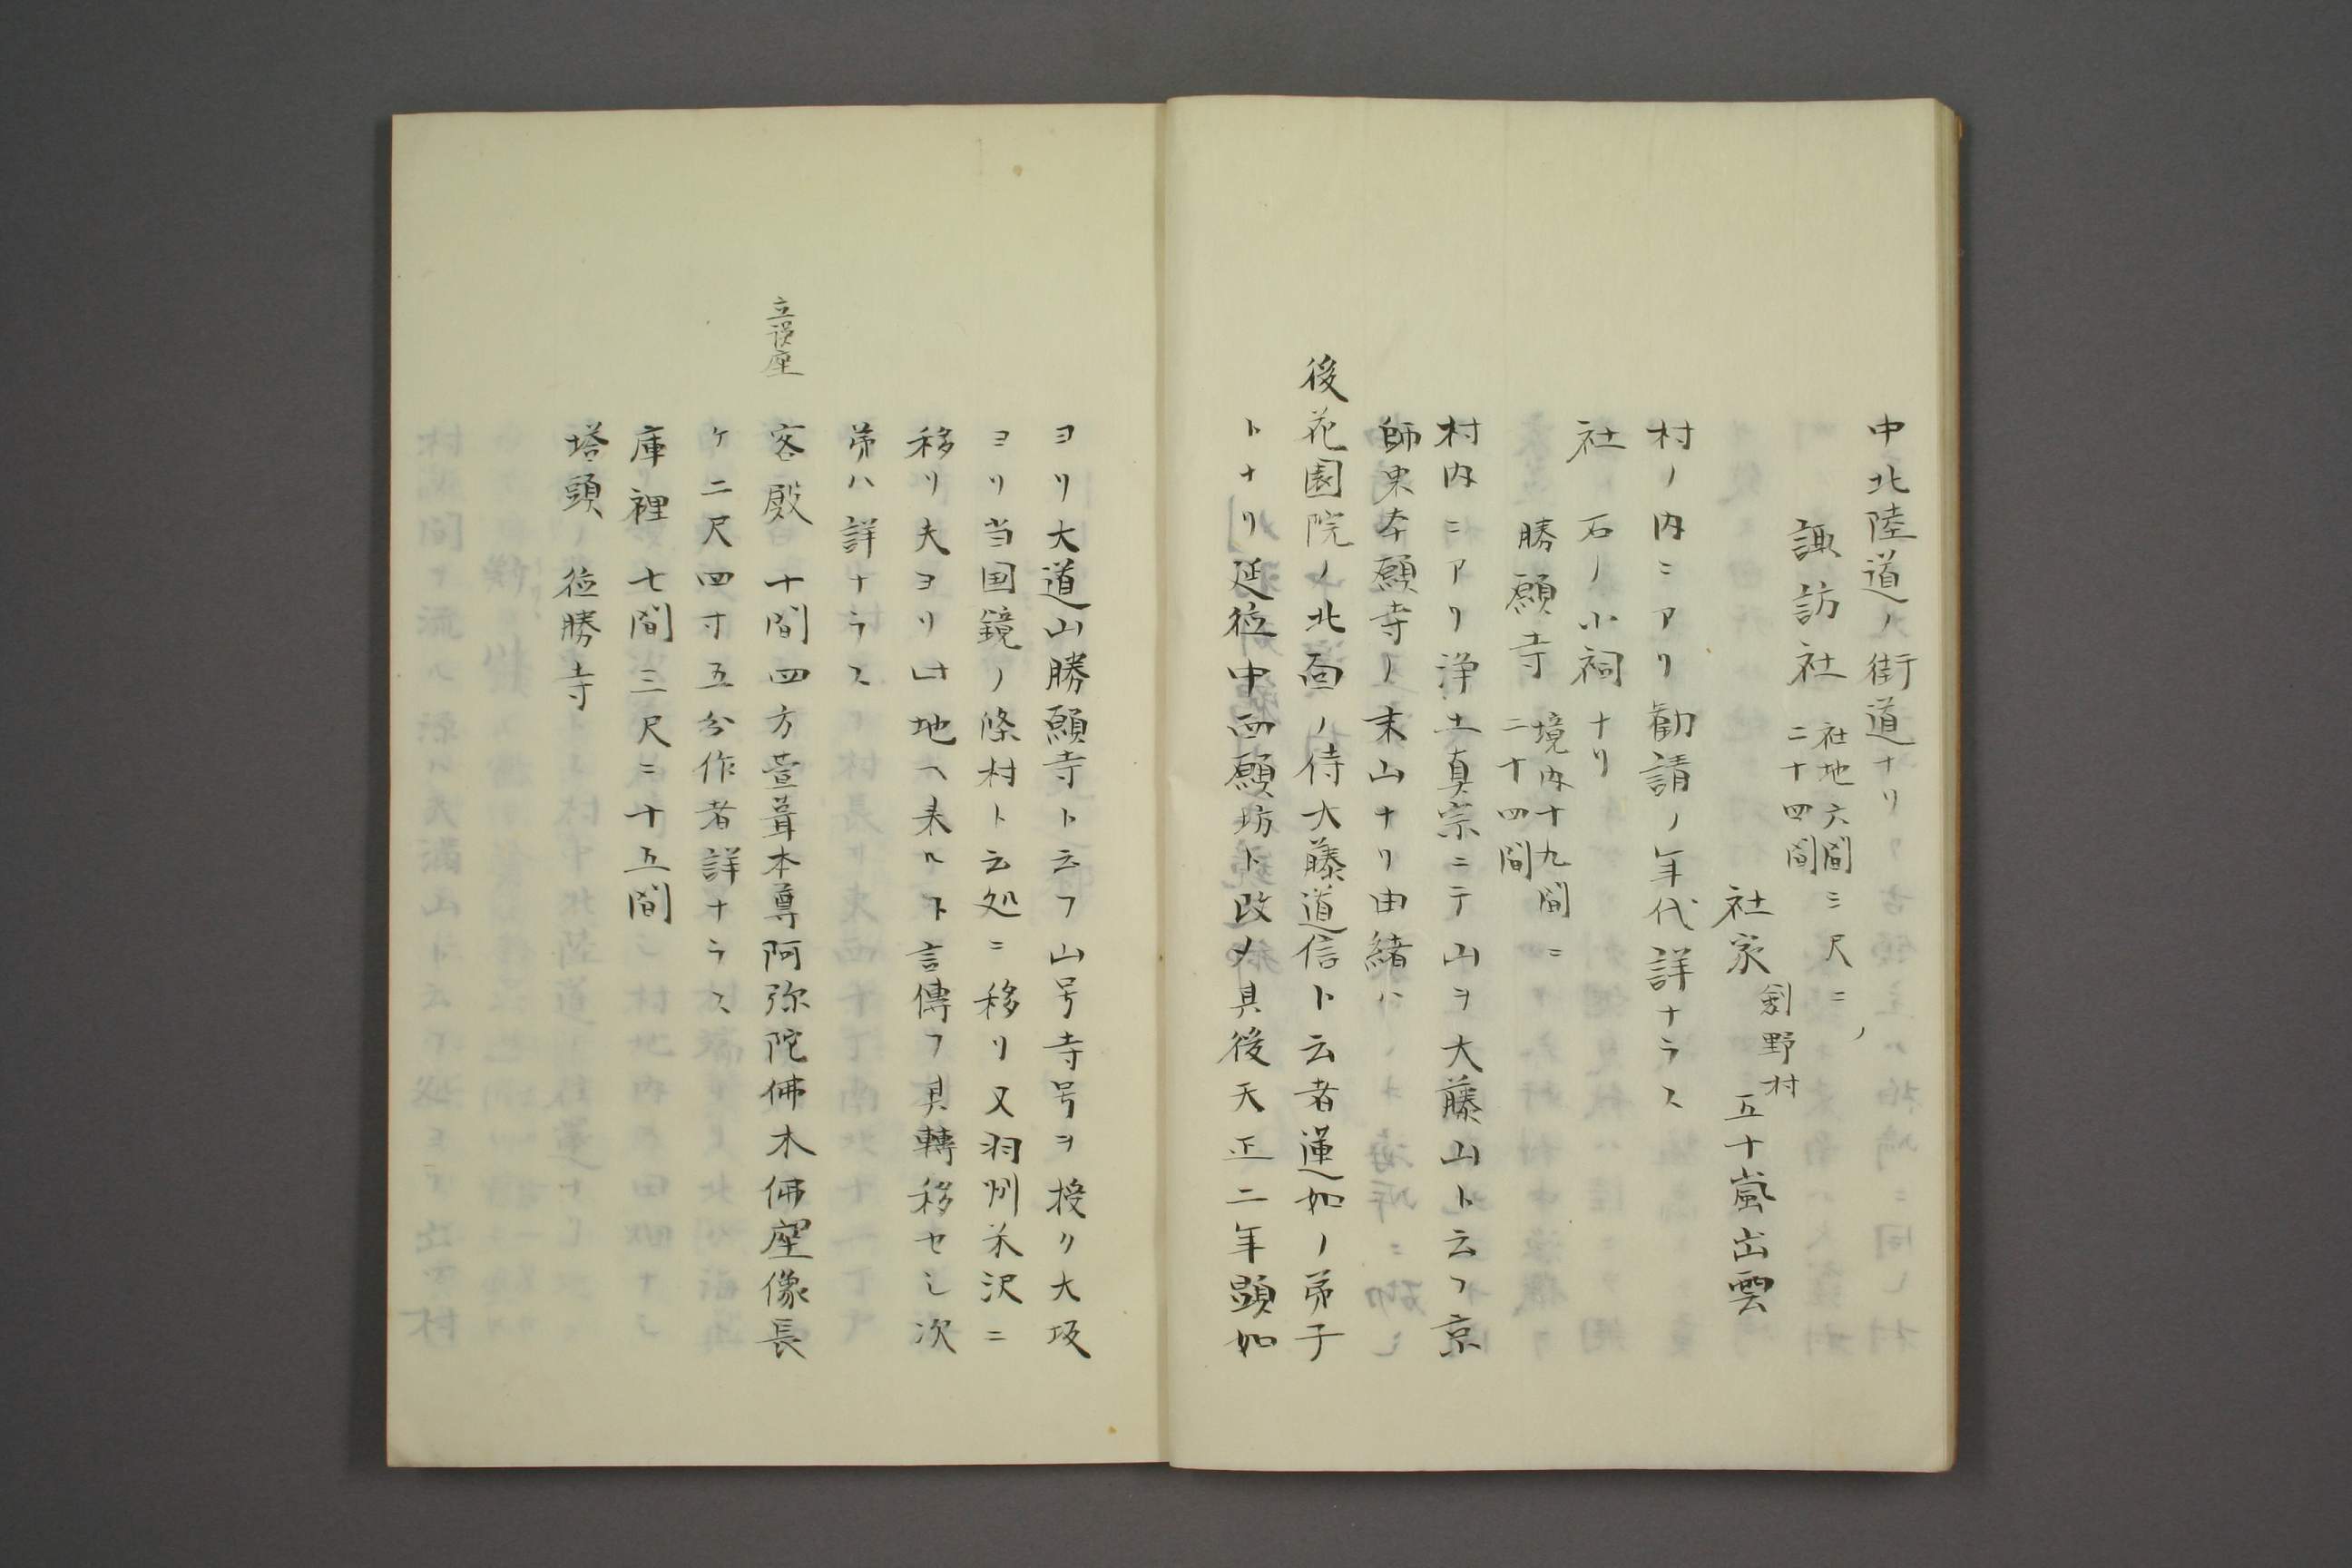 中北陸道ノ街道ナリ
諏訪社 社地六間三尺ニ
二十四間
社家 剣野村 五十嵐出雲
村ノ内ニアリ勧請ノ年代詳ナラス
社 石ノ小祠ナリ
勝願寺 境内十九間ニ
二十四間
村内ニアリ浄土真宗ニテ山ヲ大藤山ト云フ京
師東本願寺ノ末山ナリ由緒ハ
後花園院ノ北面ノ侍大藤道信ト云者蓮如ノ弟子
トナリ延徳中西願坊ト改メ其後天正二年顕如
ヨリ大道山勝願寺ト云フ山号寺号ヲ授ク大坂
ヨリ当国鏡ノ條村ト云処ニ移リ又羽州米沢ニ
移リ夫ヨリ此地ヘ来ルト言傳フ其轉移セシ次
第ハ詳ナラス
立誤座
客殿 十間四方萱葺本尊阿弥陀佛木佛座像長
ケ二尺四寸五分作者詳ナラス
庫裡 七間三尺ニ十五間
塔頭 徳勝寺